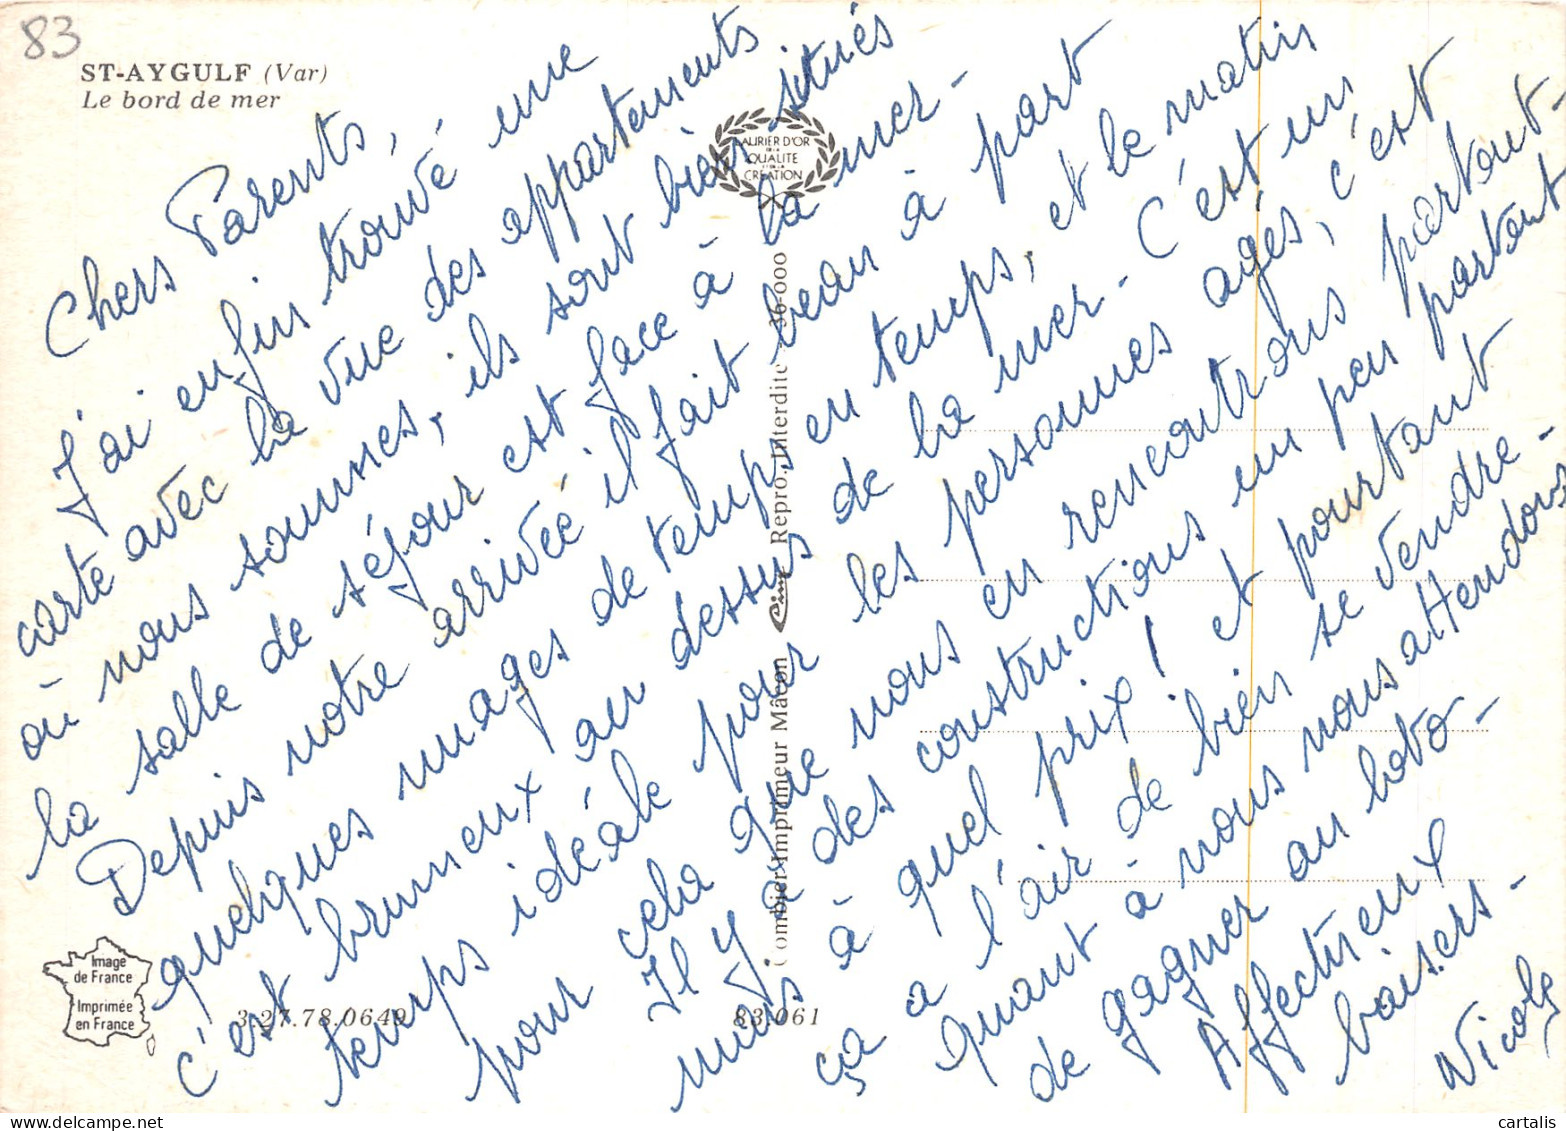 83
ST-AYGULF (Var)
Le bord de mer
LAURIER D'OR
DE LA
QUALITE
ET DE LA
CREATION
Chers Parents,
J'ai enfin trouvé une
carte avec la vue des appartements
où nous sommes, ils sont bien situés
la salle de séjour est face à la mer -
Depuis notre arrivée il fait beau à part
quelques nuages de temps en temps, et le matin
c'est brumeux au dessus de la mer - C'est un
temps idéale pour les personnes agés, c'est
pour cela que nous en rencontrons partout -
Il y a des constructions un peu partout
mais à quel prix ! et pourtant
ça a l'air de bien se vendre -
Quant à nous nous attendons
de gagner au loto -
Affectueux
baisers -
Nicole
Combier Imprimeur Mâcon Cim Repro. Interdite 36-000
Image
de France
Imprimée
en France
3.27.78.0649
83.061
cartalis